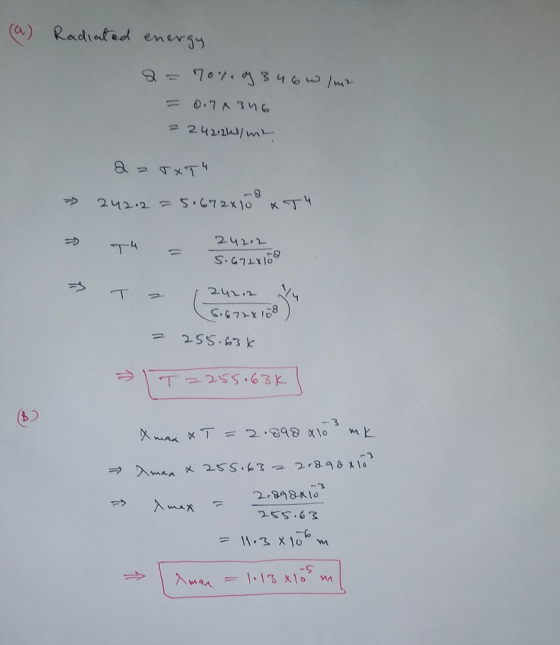 (a) Radiated energy
Q = 70% of 346 W/m²
= 0.7 × 346
= 242.2 W/m²
Q = σ × T⁴
⇒ 242.2 = 5.672×10⁻⁸ × T⁴
⇒ T⁴ = 242.2 / 5.672×10⁻⁸
⇒ T = (242.2 / 5.672×10⁻⁸)^1/4
= 255.63 K
⇒ T = 255.63K
(b)
λmax × T = 2.898 × 10⁻³ mK
⇒ λmax × 255.63 = 2.898 × 10⁻³
⇒ λmax = 2.898×10⁻³ / 255.63
= 11.3 × 10⁻⁶ m
⇒ λmax = 1.13 × 10⁻⁵ m